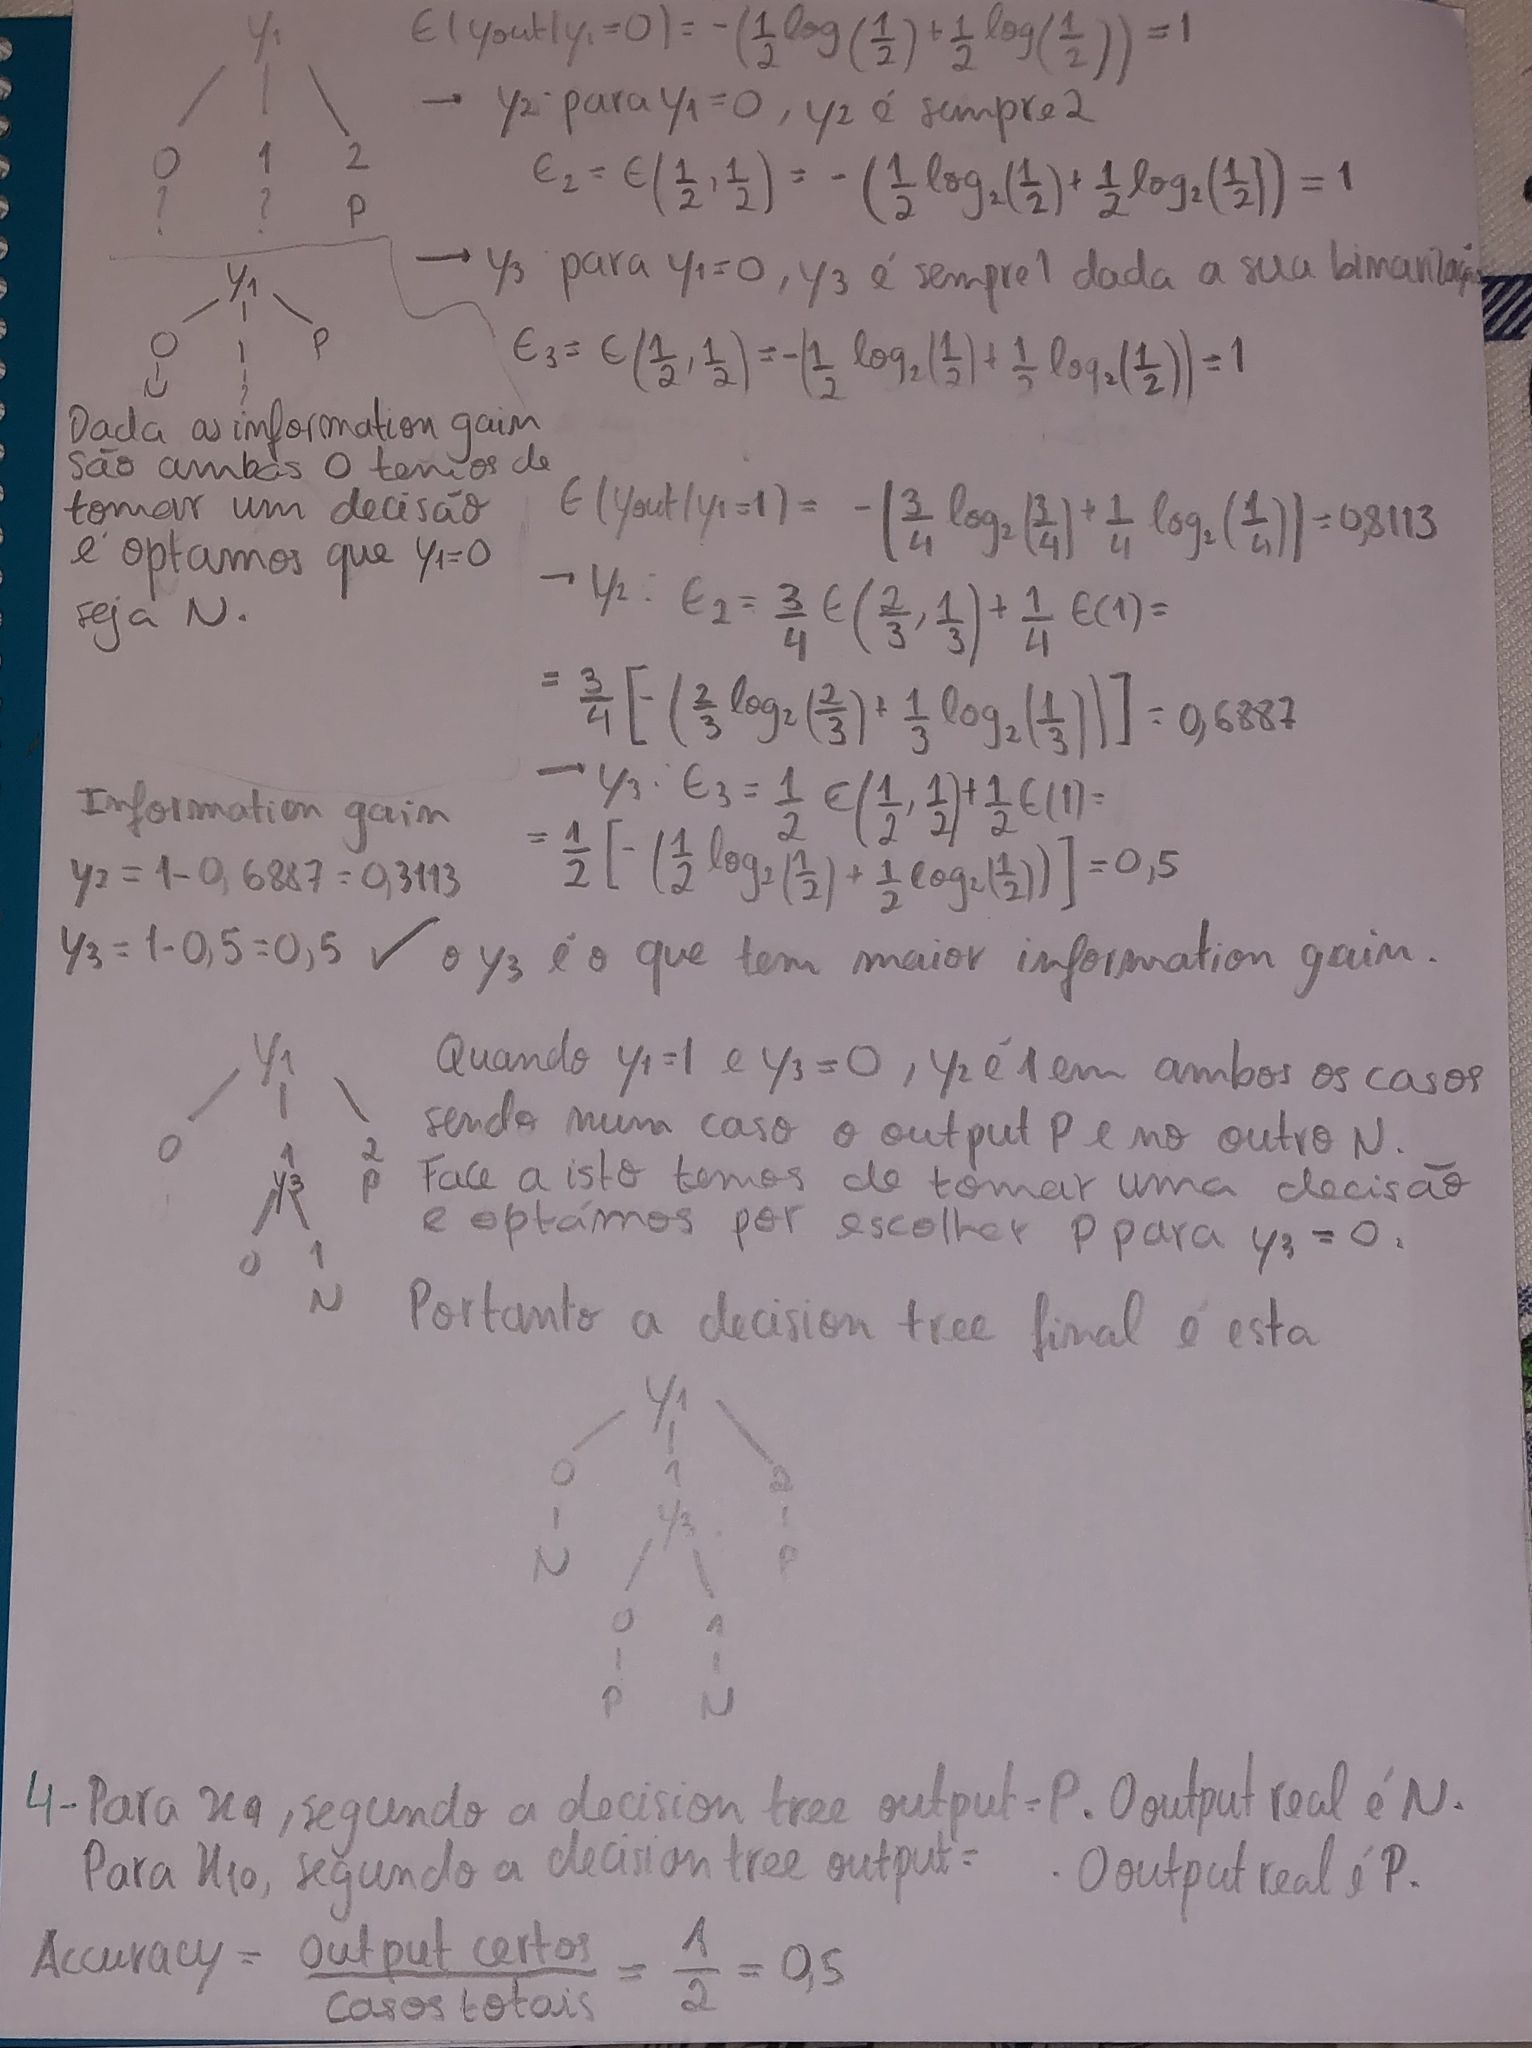 y1
0 1 2
? ? P
E(yout/y1=0) = -(1/2 log(1/2) + 1/2 log(1/2)) = 1
→ y2: para y1=0, y2 é sempre 2
E2 = E(1/2, 1/2) = -(1/2 log2(1/2) + 1/2 log2(1/2)) = 1
→ y3 para y1=0, y3 é sempre 1 dada a sua binarização
E3 = E(1/2, 1/2) = -(1/2 log2(1/2) + 1/2 log2(1/2)) = 1
y1
0 1 P
N ?
Dada as information gain
são ambas 0 temos de
tomar um decisão
e optamos que y1=0
seja N.
E(yout/y1=1) = -(3/4 log2(3/4) + 1/4 log2(1/4)) = 0,8113
→ y2: E2 = 3/4 E(2/3, 1/3) + 1/4 E(1) =
= 3/4 [-(2/3 log2(2/3) + 1/3 log2(1/3))] = 0,6887
→ y3: E3 = 1/2 E(1/2, 1/2) + 1/2 E(1) =
= 1/2 [-(1/2 log2(1/2) + 1/2 log2(1/2))] = 0,5
Information gain
y2 = 1-0,6887 = 0,3113
y3 = 1-0,5 = 0,5 ✓ o y3 é o que tem maior information gain.
y1
0 1 2
y3 P
0 1
N
Quando y1=1 e y3=0, y2 é 1 em ambos os casos
sendo num caso o output P e no outro N.
Face a isto temos de tomar uma decisão
e optámos por escolher P para y3=0.
Portanto a decision tree final é esta
y1
0 1 2
N y3 P
0 1
P N
4- Para x9, segundo a decision tree output = P. O output real é N.
Para x10, segundo a decision tree output = . O output real é P.
Accuracy = output certos / casos totais = 1/2 = 0,5